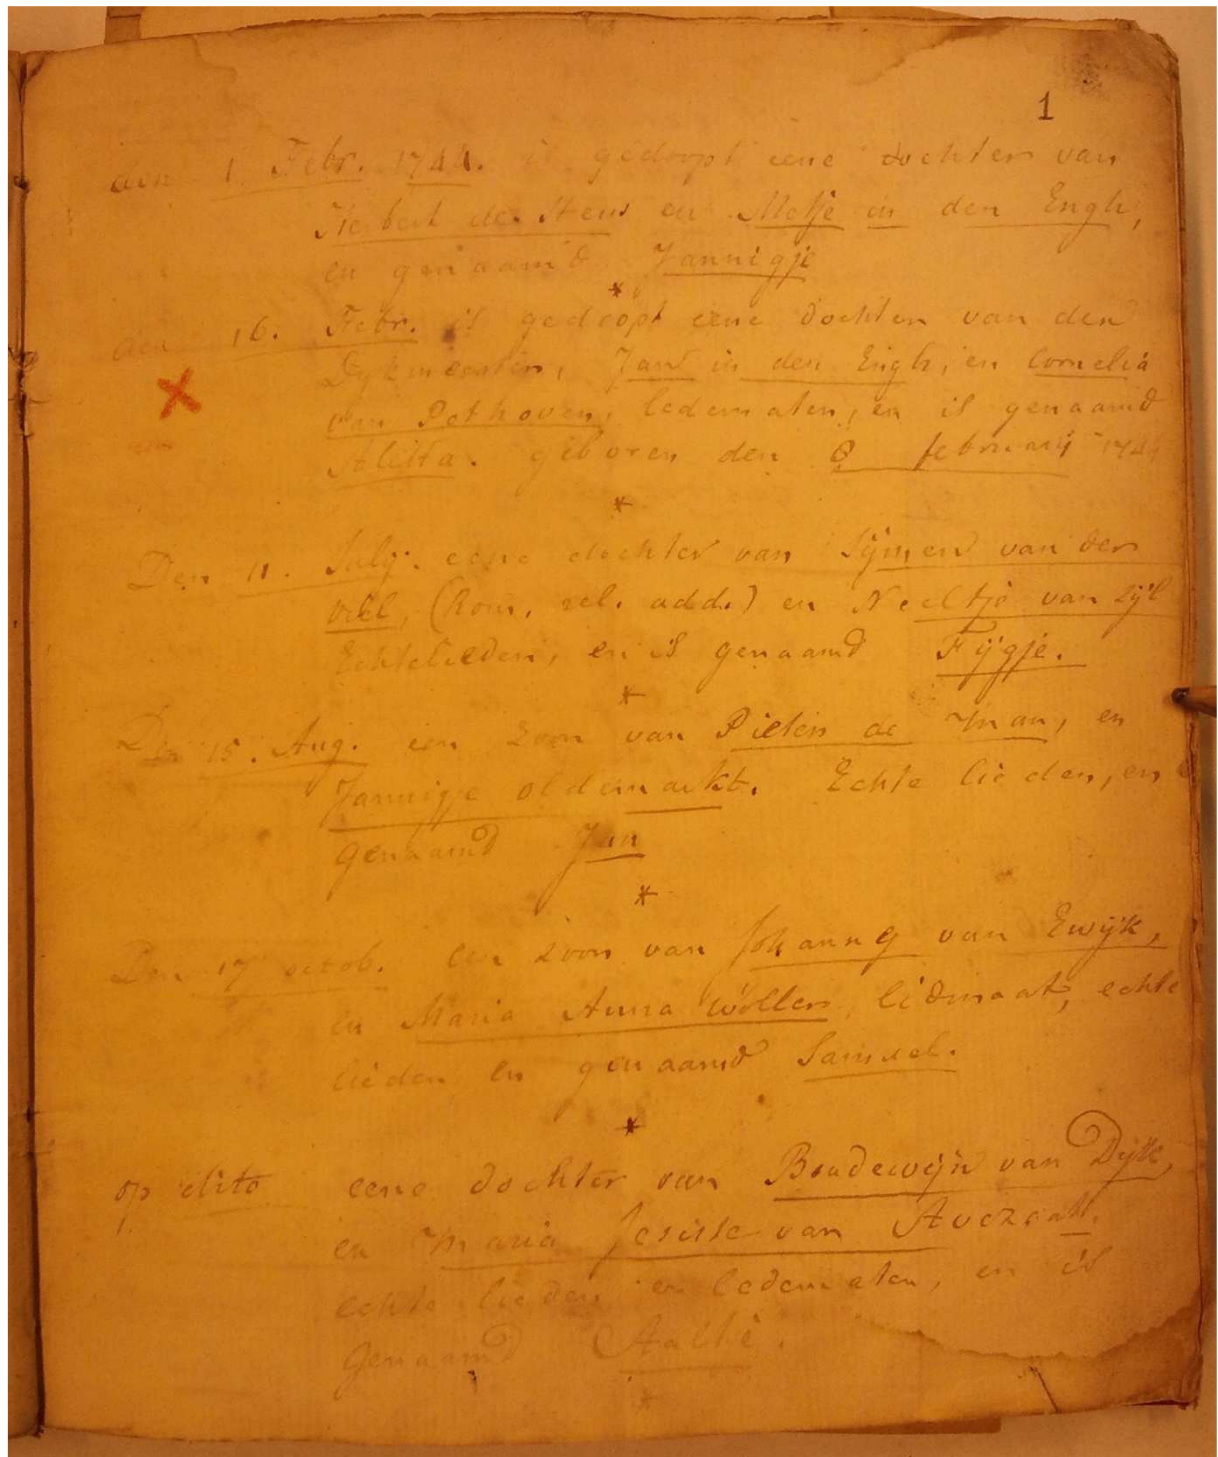 1
den 1 Febr. 1744. is gedoopt eene dochter van
de en Metje in den Engh,
en genaamd Jannigje
*
den 16. Febr. is gedoopt eene dochter van den
Dykmeester, Jan in den Engh, en Cornelia
van Pothoven, ledematen, en is genaamd
Aletta. geboren den 8 february 1744
*
Den 11. July. eene dochter van Sÿmen van der
(Rom. rel. add.) en Neeltje van Zÿl
Echtelieden, en is genaamd Fÿgje.
*
Den 15. Aug. een zoon van Pieter de Man, en
Jannigje oldemarkt. Echte lieden, en
genaamd Jan
*
Den 17 octob. een zoon van van Ewÿk,
en Maria Anna Wöller, lidmaat, echte
lieden en genaamd Samuel.
*
op dito eene dochter van Boudewÿn van Dÿk,
en Maria van
echte lieden en ledematen, en is
genaamd
*